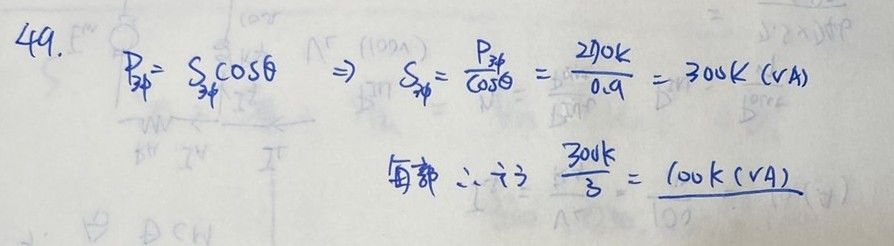 49. P3φ = S3φ cosθ ⇒ S3φ = P3φ / cosθ = 270k / 0.9 = 300k (VA)
每部 ∴ 300k / 3 = 100k (VA)